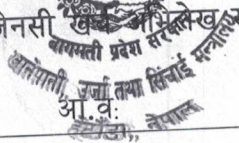 जेनसी खर्च अभिलेख
बागमती प्रदेश सरकार
खानेपानी, उर्जा तथा सिंचाई मन्त्रालय
आ.व.:
नेपाल